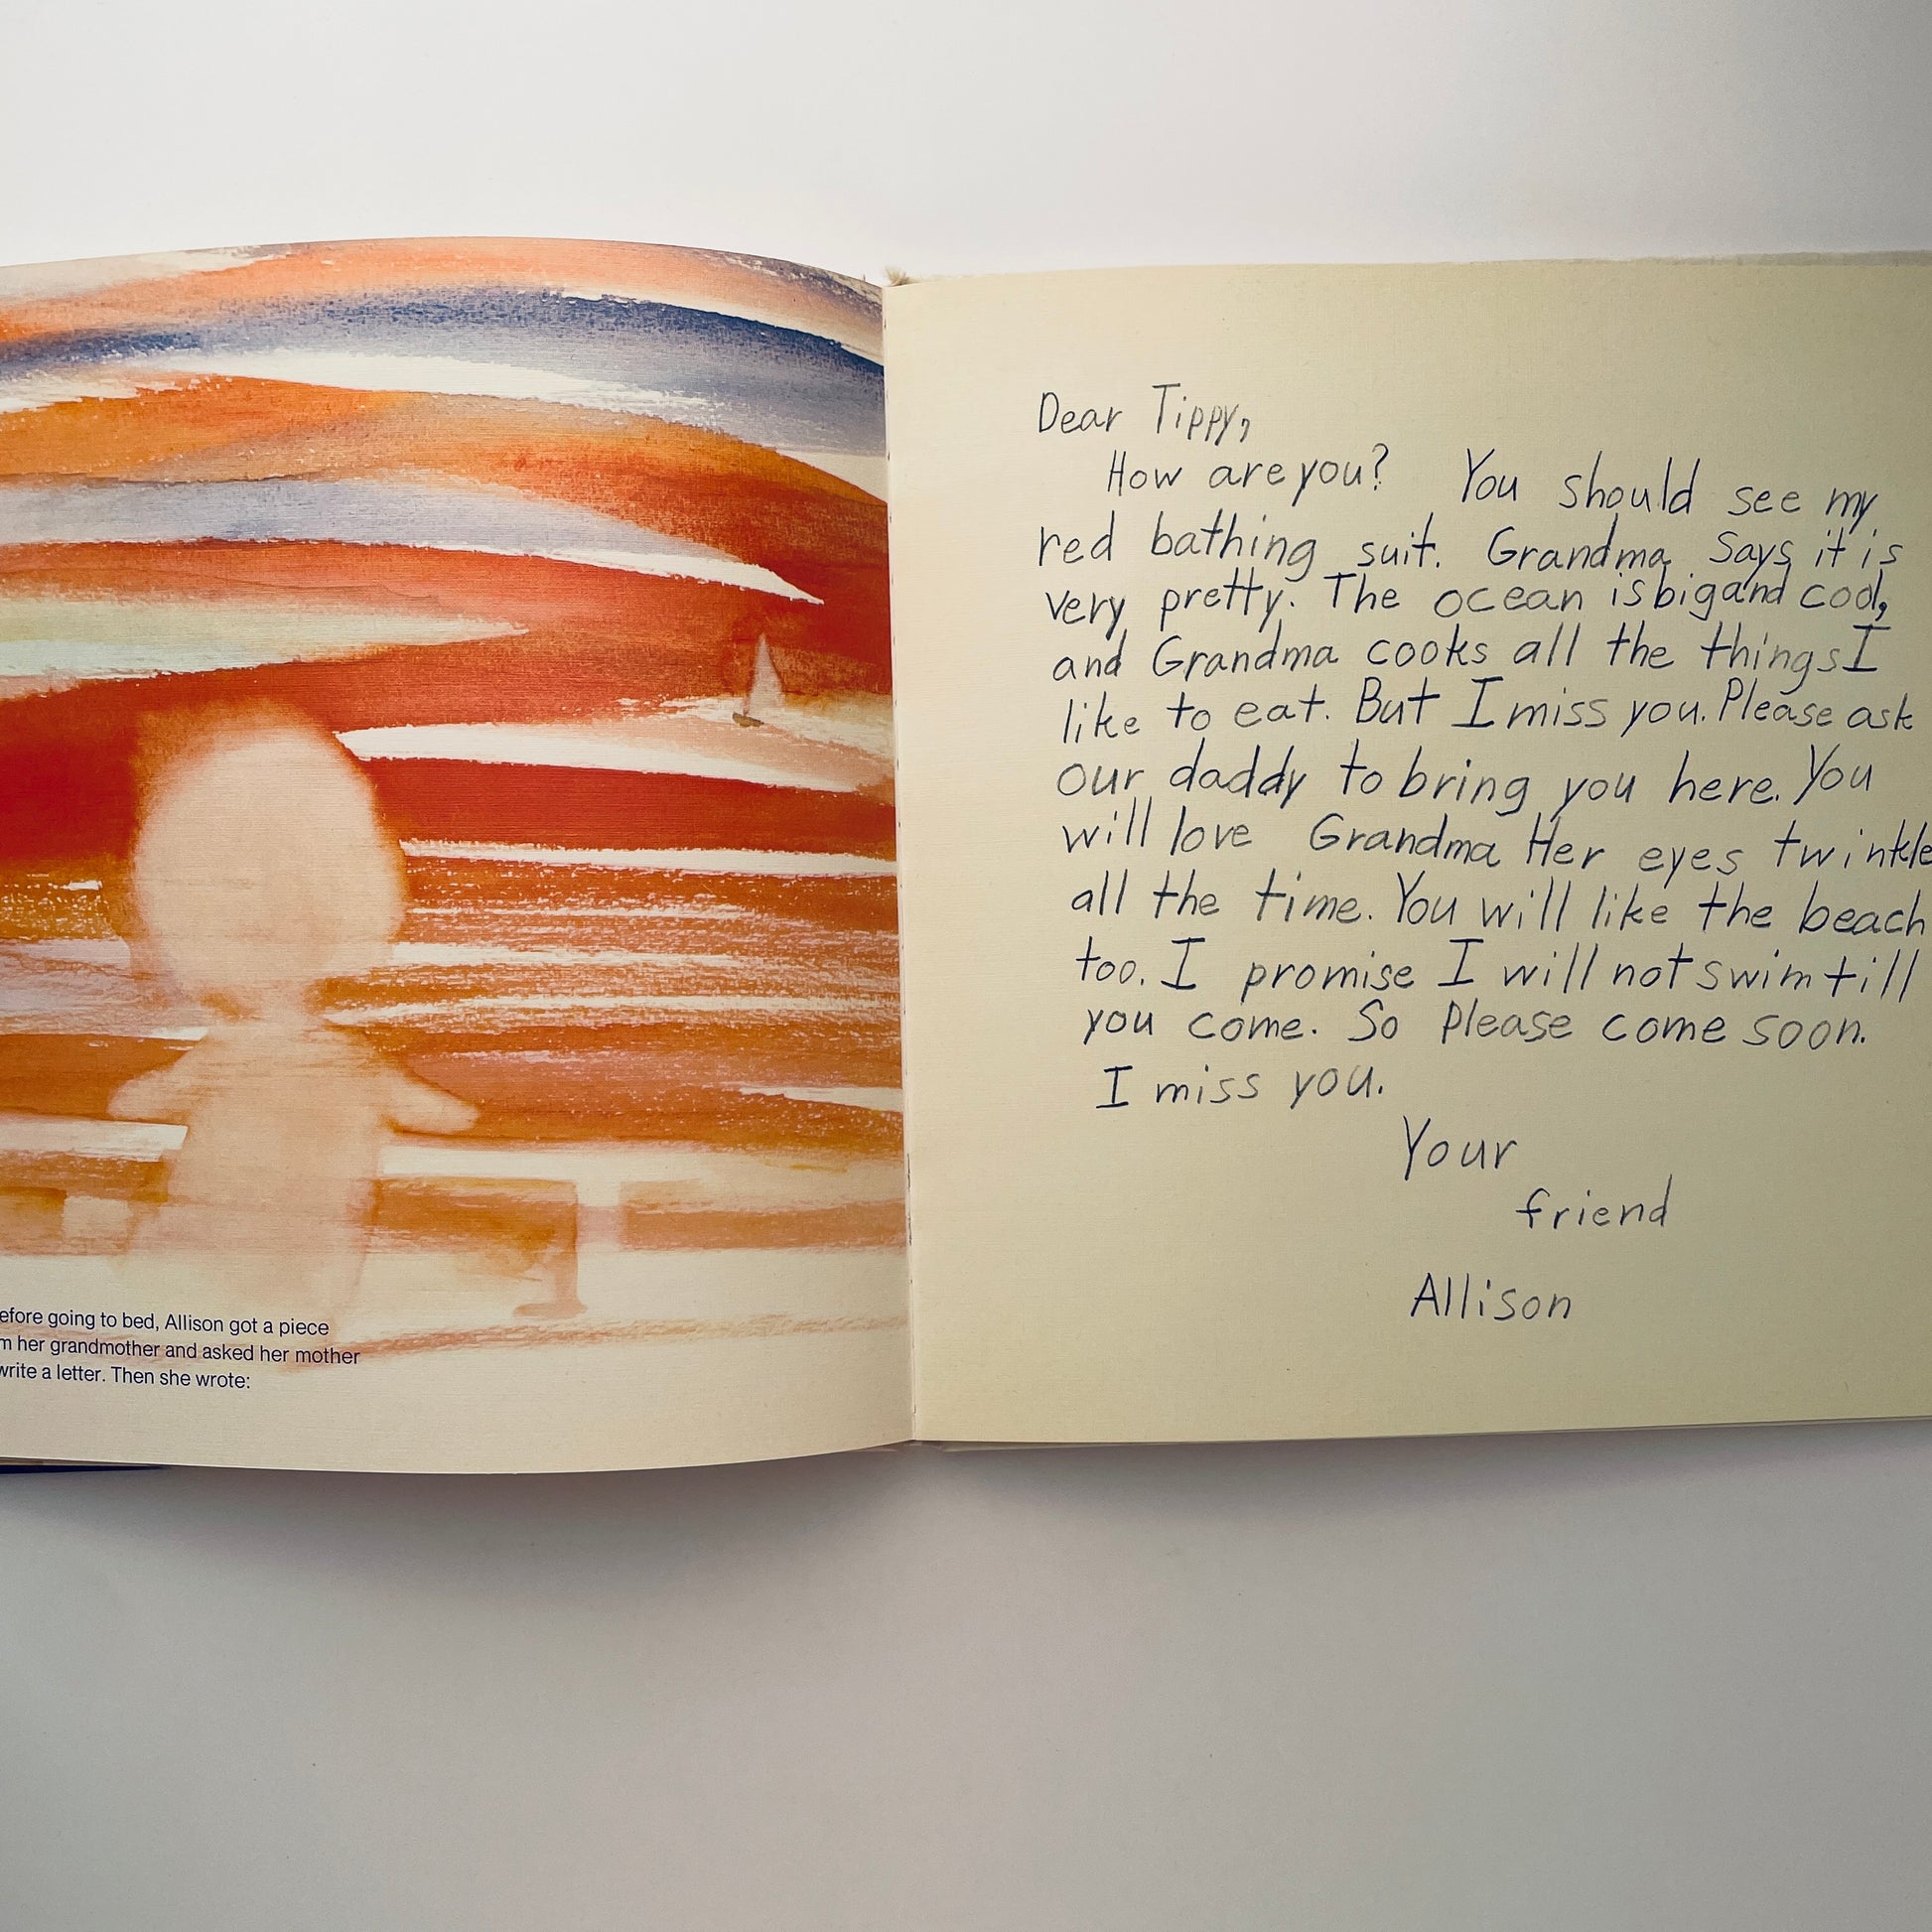 efore going to bed, Allison got a piece
m her grandmother and asked her mother
write a letter. Then she wrote:
Dear Tippy,
How are you? You should see my
red bathing suit. Grandma Says it is
very pretty. The ocean is big and cool,
and Grandma cooks all the things I
like to eat. But I miss you. Please ask
our daddy to bring you here. You
will love Grandma Her eyes twinkle
all the time. You will like the beach
too. I promise I will not swim till
you come. So Please come soon.
I miss you.
Your
friend
Allison